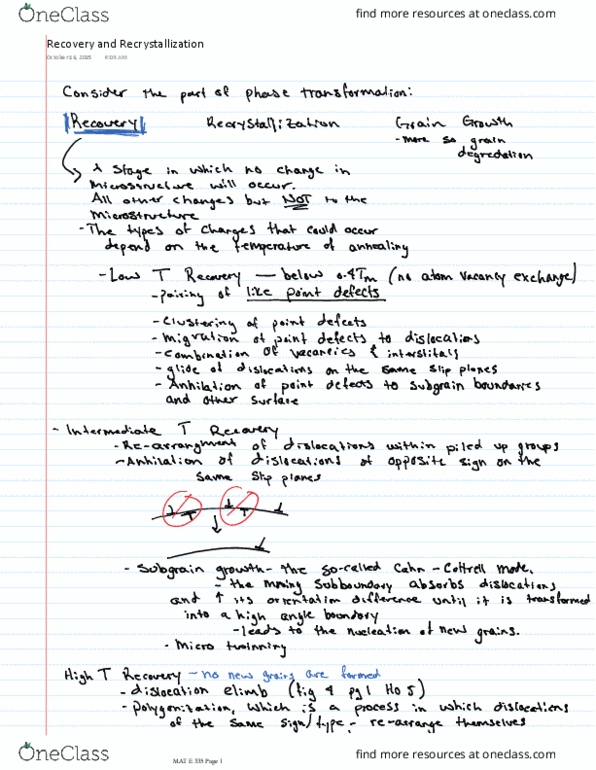 OneClass
find more resources at oneclass.com
Recovery and Recrystallization
9:05 AM
Consider the part of phase transformation:
Recovery Recrystallization Grain Growth
- more so grain
degredation
A stage in which no change in
Microstructure will occur.
All other changes but NOT to the
Microstructure
- The types of changes that could occur
depend on the temperature of annealing
- Low T Recovery — below 0.4Tm (no atom vacancy exchange)
- pairing of like point defects
- Clustering of point defects
- Migration of point defects to dislocations
- Combination of vacancies & interstitals
- glide of dislocations on the same slip planes
- Anhilation of point defects to subgrain boundaries
and other surface
- Intermediate T Recovery
- Re-arrangment of dislocations within piled up groups
- Anhilation of dislocations of opposite sign on the
same slip planes
- Subgrain growth - the so-called Cahn - Cottrell mode.
- the moving subboundary absorbs dislocations
and ↑ its orientation difference until it is transformed
into a high angle boundary
- leads to the nucleation of new grains.
- Micro twinning
High T Recovery - no new grains are formed
- dislocation climb (fig 4 pg 1 Ho 5)
- polygonization, which is a process in which dislocations
of the same sign/type - re-arrange themselves
OneClass
MAT E 335 Page 1
find more resources at oneclass.com